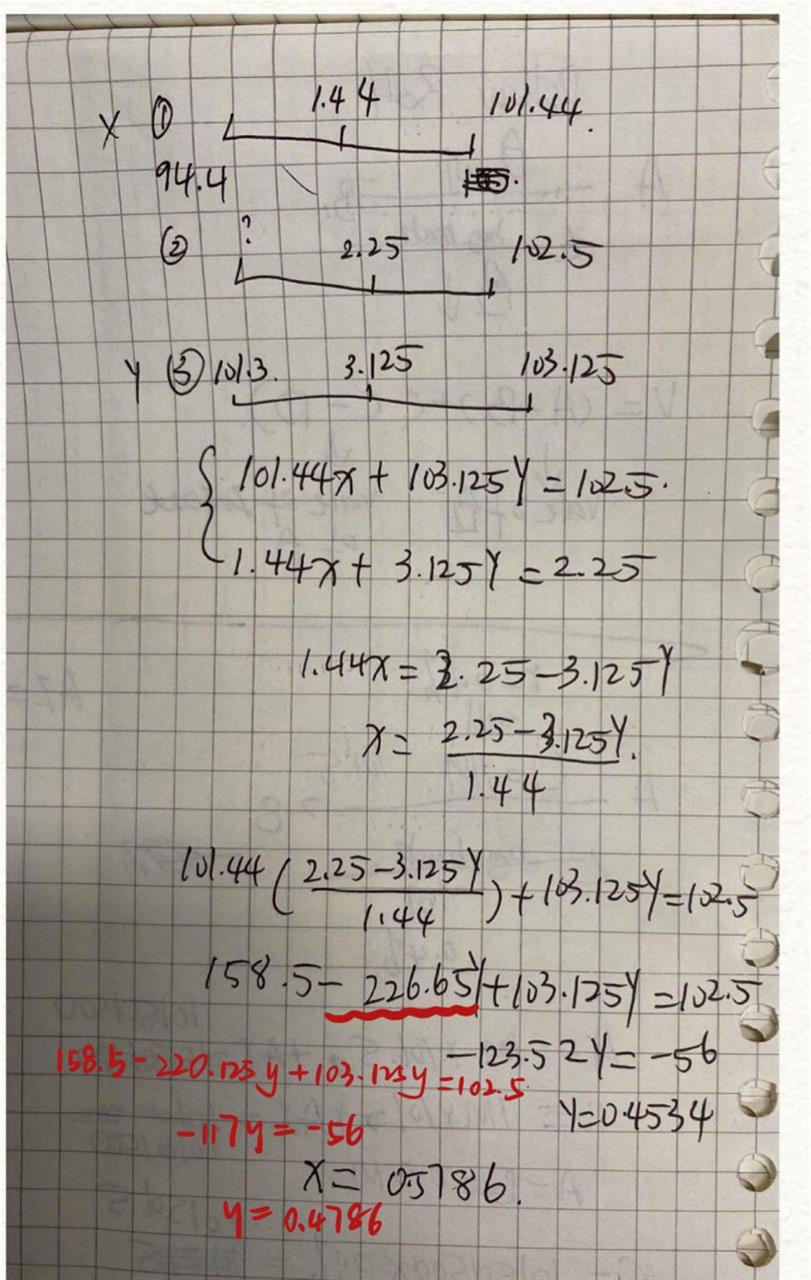 X ① 1.44 101.44.
94.4
② ? 2.25 102.5
Y ③ 101.3. 3.125 103.125
101.44x + 103.125Y = 102.5.
1.44x + 3.125Y = 2.25
1.44x = 2.25-3.125Y
x = 2.25-3.125Y.
1.44
101.44 ( 2.25-3.125Y ) + 103.125Y = 102.5
1.44
158.5 - 226.65Y + 103.125Y = 102.5
-123.52Y = -56
158.5 - 220.125y + 103.125y = 102.5
Y=0.4534
-117y = -56
X = 0.5786.
y = 0.4786